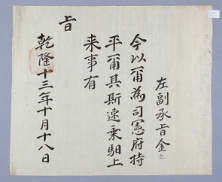 左副承旨金
今以爾為司憲府持
平爾其斯速乘馹上
来事有
旨
乾隆十三年十月十八日